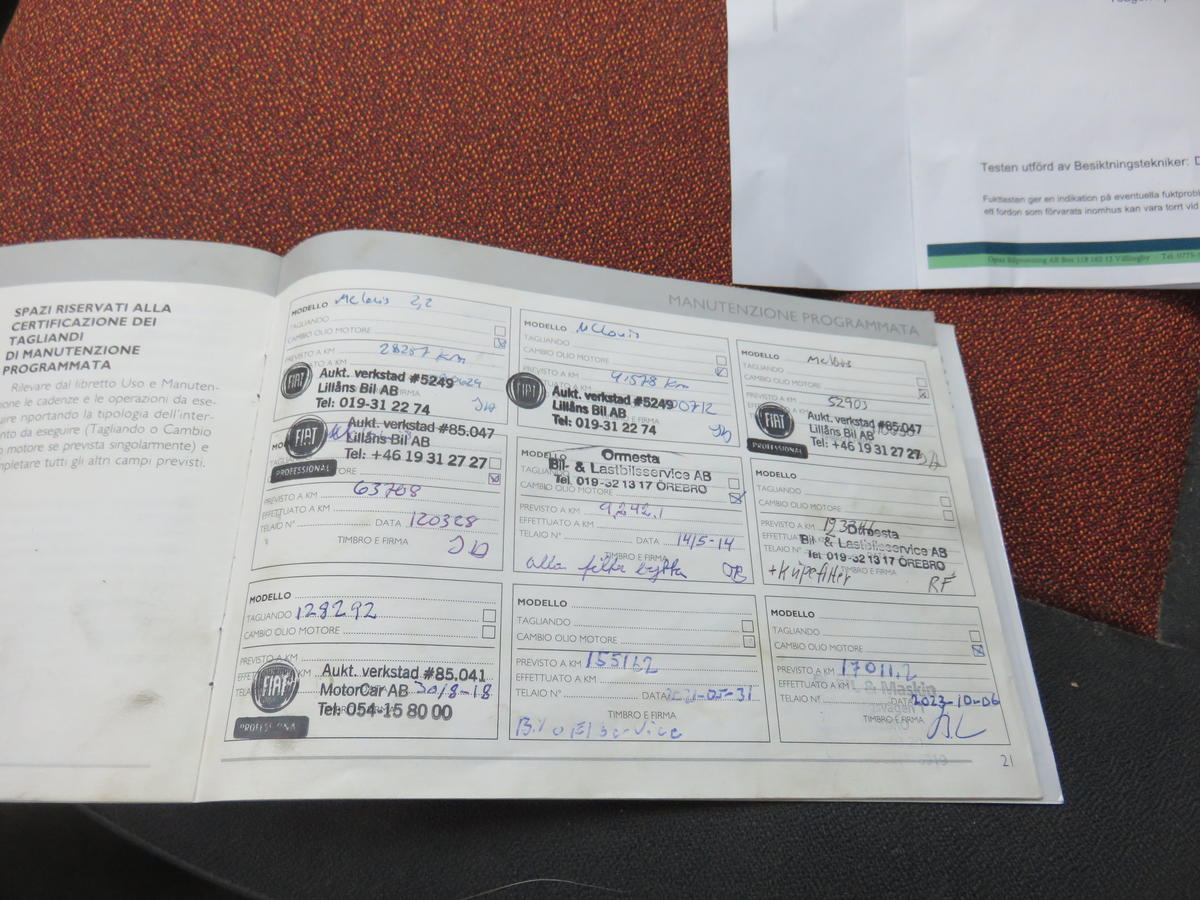 Testen utförd av Besiktningstekniker:
Fukttesten ger en indikation på eventuella
ett fordon som förvarats inomhus kan vara torrt vid
Opus Bilprovning AB Box
MANUTENZIONE PROGRAMMATA
SPAZI RISERVATI ALLA
CERTIFICAZIONE DEI
TAGLIANDI
DI MANUTENZIONE
PROGRAMMATA
Rilevare dal libretto Uso e Manuten-
le cadenze e le operazioni da ese-
riportando la tipologia dell'inter-
da eseguire (Tagliando o Cambio
motore se prevista singolarmente) e
tutti gli altri campi previsti.
MODELLO McLouis 2,2
TAGLIANDO
CAMBIO OLIO MOTORE
PREVISTO A KM 28257 km
FIAT
Aukt. verkstad #5249
Lillåns Bil AB
Tel: 019-31 22 74
MODELLO McLouis
TAGLIANDO
CAMBIO OLIO MOTORE
PREVISTO A KM 41578 km
Aukt. verkstad #5249
Lillåns Bil AB
Tel: 019-31 22 74
MODELLO McLouis
TAGLIANDO
CAMBIO OLIO MOTORE
PREVISTO A KM 52903
FIAT
PROFESSIONAL
Aukt. verkstad #85.047
Lillåns Bil AB
Tel: +46 19 31 27 27
FIAT
PROFESSIONAL
Aukt. verkstad #85.047
Lillåns Bil AB
Tel: +46 19 31 27 27
PREVISTO A KM 63768
EFFETTUATO A KM
TELAIO N° DATA 120328
TIMBRO E FIRMA
MODELLO
Ormesta
Bil- & Lastbilsservice AB
Tel. 019-32 13 17 ÖREBRO
CAMBIO OLIO MOTORE
PREVISTO A KM 9,242.1
EFFETTUATO A KM
TELAIO N° DATA 14/5-14
TIMBRO E FIRMA
alla filter bytta
MODELLO
TAGLIANDO
CAMBIO OLIO MOTORE
PREVISTO A KM
Ormesta
Bil- & Lastbilsservice AB
Tel. 019-32 13 17 ÖREBRO
+Kupefilter RF
MODELLO
TAGLIANDO 128292
CAMBIO OLIO MOTORE
PREVISTO A KM
FIAT
PROFESSIONAL
Aukt. verkstad #85.041
MotorCar AB 30/8-18
Tel: 054-15 80 00
MODELLO
TAGLIANDO
CAMBIO OLIO MOTORE
PREVISTO A KM 155162
EFFETTUATO A KM
TELAIO N° DATA 2021-05-31
TIMBRO E FIRMA
Bil o El service
MODELLO
TAGLIANDO
CAMBIO OLIO MOTORE
PREVISTO A KM 17011,2
EFFETTUATO A KM
TELAIO N° DATA 2023-10-06
TIMBRO E FIRMA
21